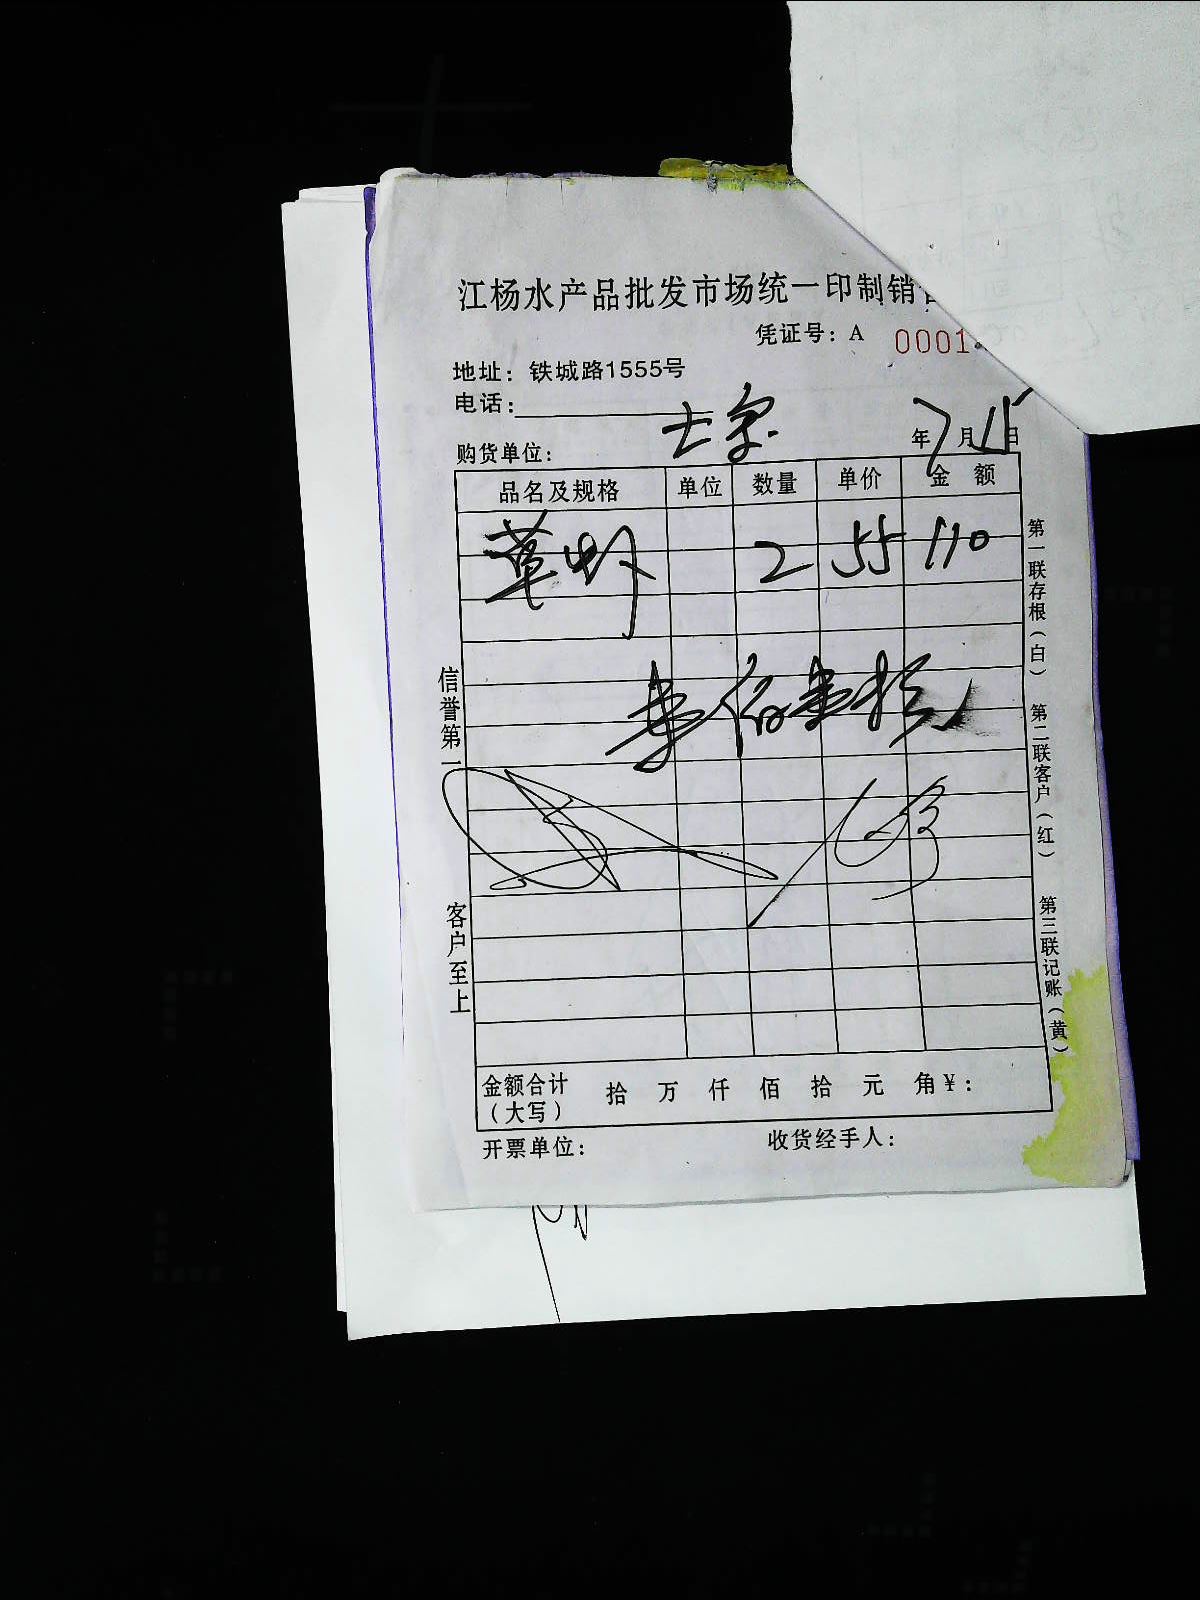 江杨水产品批发市场统一印制销
凭证号：A 0001
地址：铁城路1555号
电话：
购货单位：
年7月15日
品名及规格 单位 数量 单价 金 额
草虾 2 55 110
信誉第一 客户至上
第一联存根（白） 第二联客户（红） 第三联记账（黄）
金额合计（大写） 拾 万 仟 佰 拾 元 角 ¥：
开票单位： 收货经手人：